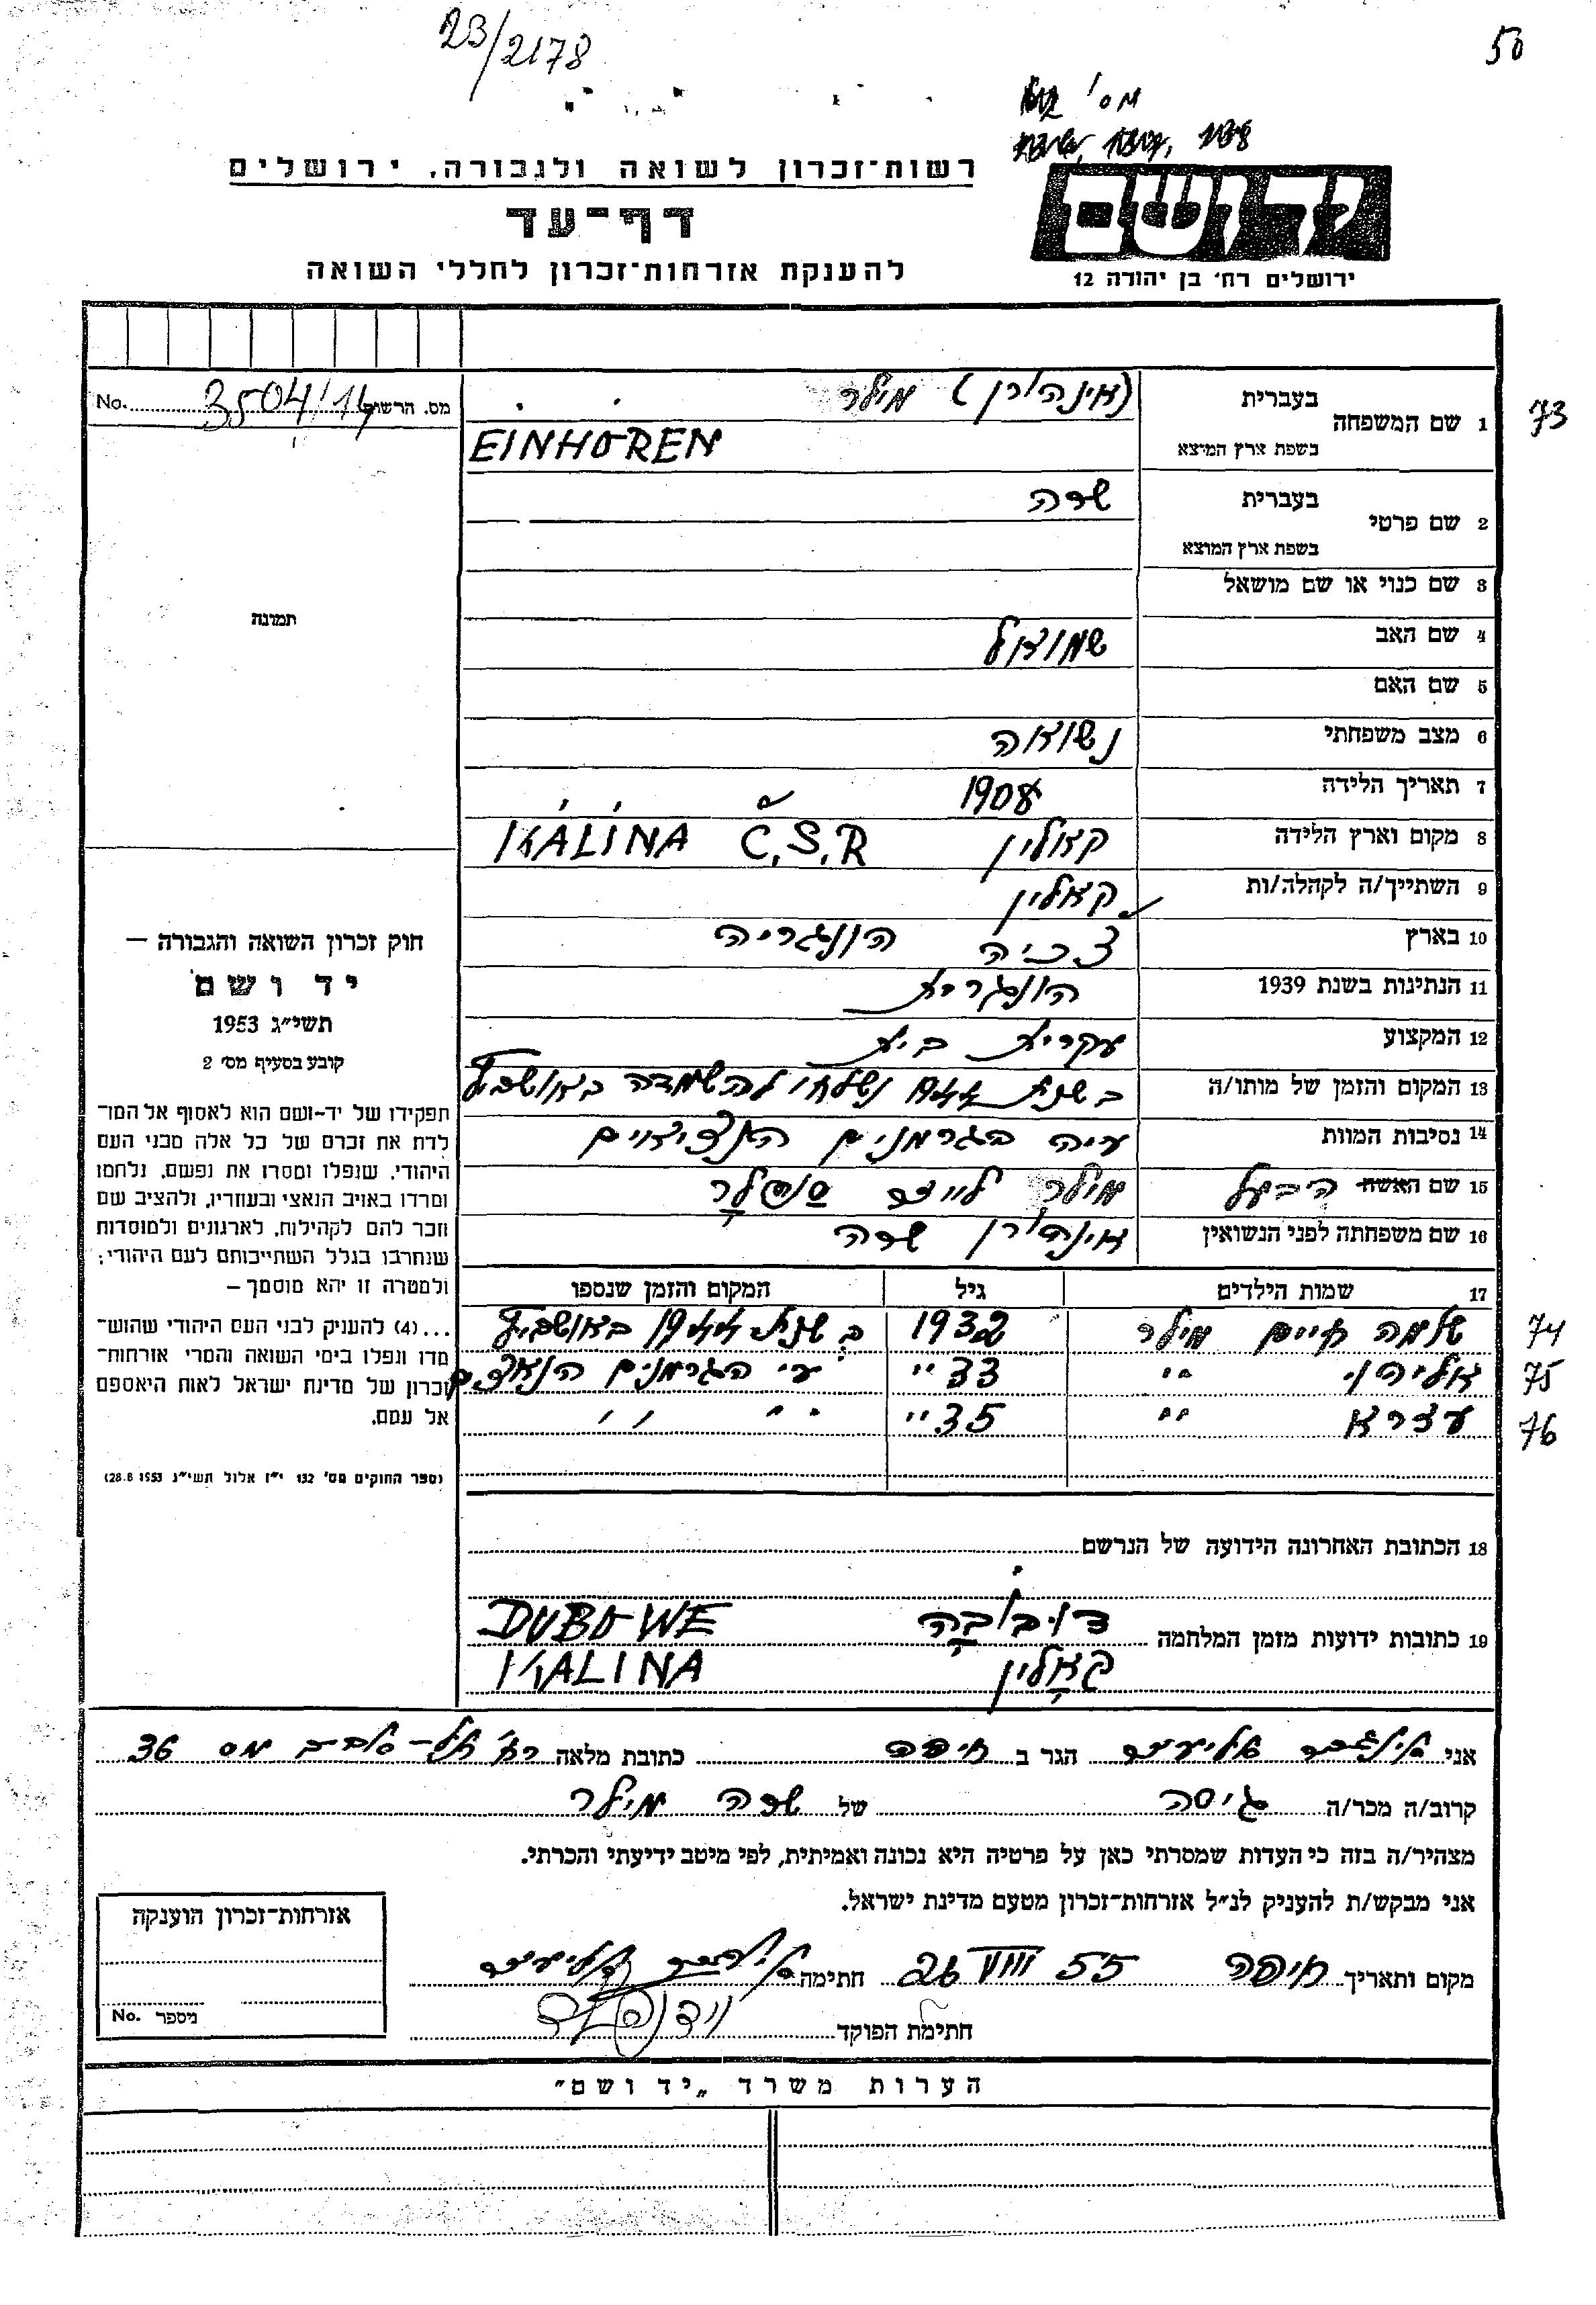 23/2178
50
מס'
רשות-זכרון לשואה ולגבורה. ירושלים
דף-עד
להענקת אזרחות-זכרון לחללי השואה
יד ושם
ירושלים רח' בן יהודה 12
No. 3504/14 מס. הרשום
1 שם המשפחה בעברית (אינהורן) מילר
73
בשפת ארץ המוצא EINHOREN
2 שם פרטי בעברית שרה
בשפת ארץ המוצא
3 שם כנוי או שם מושאל
תמונה
4 שם האב שמואל
5 שם האם
6 מצב משפחתי נשואה
7 תאריך הלידה 1908
8 מקום וארץ הלידה קאלין KALINA Č.S.R
9 השתייך/ה לקהלה/ות קאלין
10 בארץ צ'כיה הונגריה
11 הנתינות בשנת 1939 הונגרית
12 המקצוע עקרית בית
13 המקום והזמן של מותו/ה בשנת 944 נשלחו להשמדה באושביץ
14 נסיבות המוות ע״י הגרמנים הנאציאים
15 שם האשה הבעל מילר לייזר
16 שם משפחתה לפני הנשואין אינהורן שרה
17 שמות הילדים גיל המקום והזמן שנספו
שלמה חיים מילר 1932 בשנת 1944 באושביץ
74
אליהו " 33 " ע״י הגרמנים הנאצים
75
עזרא " 35 " " "
76
חוק זכרון השואה והגבורה —
יד ושם
תשי״ג 1953
קובע בסעיף מס׳ 2
תפקידו של יד-ושם הוא לאסוף אל המו-
לדת את זכרם של כל אלה מבני העם
היהודי, שנפלו ומסרו את נפשם, נלחמו
ומרדו באויב הנאצי ובעוזריו, ולהציב שם
וזכר להם לקהילות, לארגונים ולמוסדות
שנחרבו בגלל השתייכותם לעם היהודי;
ולמטרה זו יהא מוסמך —
...(4) להעניק לבני העם היהודי שהוש-
מדו ונפלו בימי השואה והמרי אזרחות-
זכרון של מדינת ישראל לאות היאספם
אל עמם.
(ספר החוקים מס׳ 132 י״ז אלול תשי״ג 28.8.1953)
18 הכתובת האחרונה הידועה של הנרשם
19 כתובות ידועות מזמן המלחמה דובובה DUBOWE
קאלין KALINA
אני אליעזר הגר ב חיפה כתובת מלאה רח' תל-אביב מס 36
קרוב/ה מכר/ה גיסה של שרה מילר
מצהיר/ה בזה כי העדות שמסרתי כאן על פרטיה היא נכונה ואמיתית, לפי מיטב ידיעתי והכרתי.
אני מבקש/ת להעניק לנ״ל אזרחות-זכרון מטעם מדינת ישראל.
מקום ותאריך חיפה 26 VIII 55 חתימה
חתימת הפוקד
אזרחות-זכרון הוענקה
No. מיספר
הערות משרד „יד ושם״